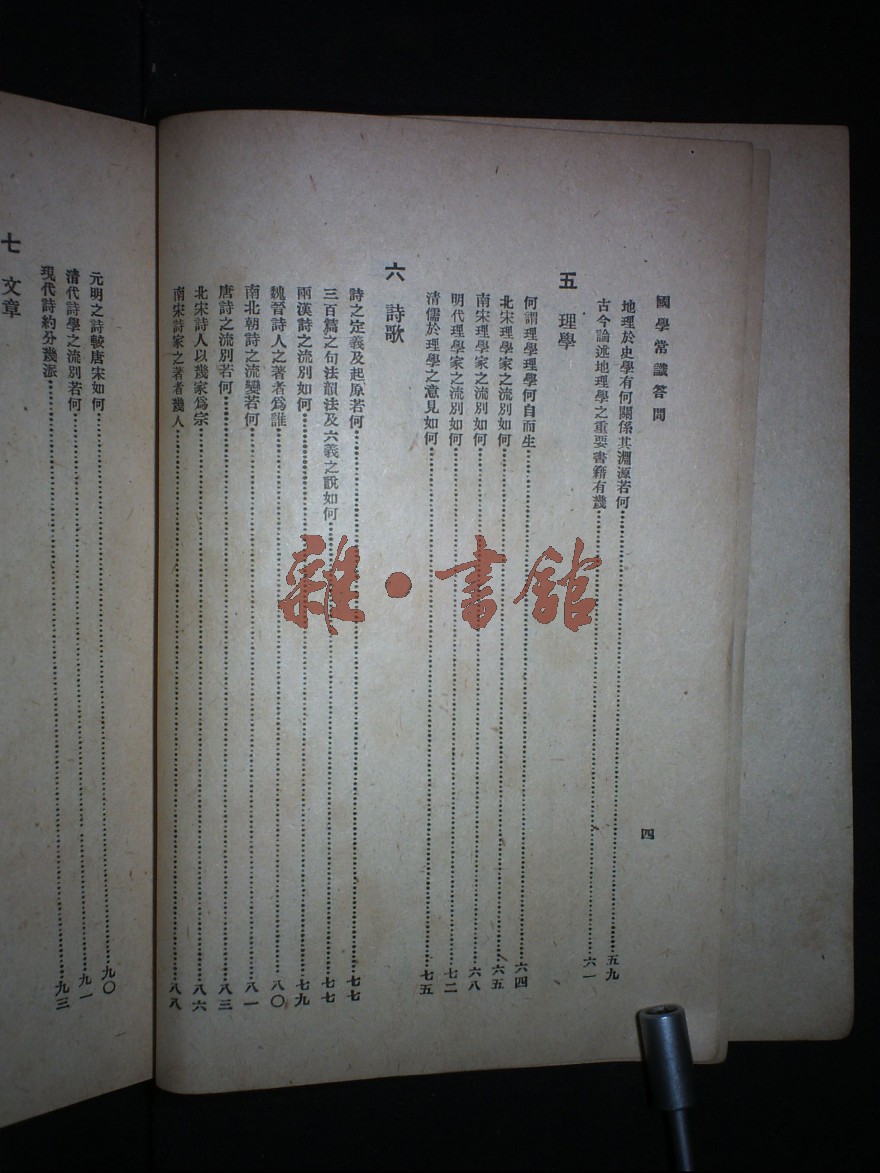 國學常識答問
四
地理於史學有何關係其淵源若何……五九
古今論述地理學之重要書籍有幾……六一
五 理學
何謂理學理學何自而生……六四
北宋理學家之流別如何……六五
南宋理學家之流別如何……六八
明代理學家之流別如何……七二
清儒於理學之意見如何……七五
六 詩歌
詩之定義及起原若何……七七
三百篇之句法韻法及六義之說如何……七七
兩漢詩之流別如何……七九
魏晉詩人之著者爲誰……八〇
南北朝詩之流變若何……八一
唐詩之流別若何……八三
北宋詩人以幾家爲宗……八六
南宋詩家之著者幾人……八八
元明之詩較唐宋如何……九〇
清代詩學之流別若何……九一
現代詩約分幾派……九三
七 文章
雜·書館